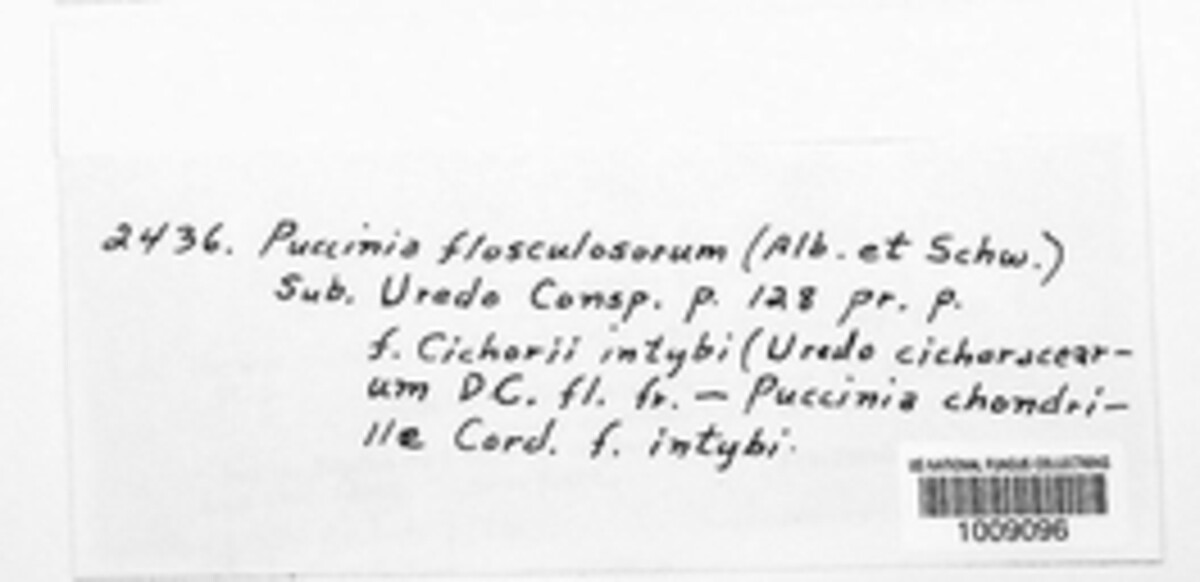 2436. Puccinia flosculosorum (Alb. et Schw.)
Sub. Uredo Consp. p. 128 pr. p.
f. Cichorii intybi (Uredo cichoracear-
um DC. fl. fr. — Puccinia chondri-
lle Cord. f. intybi.
US NATIONAL FUNGUS COLLECTIONS
1009096